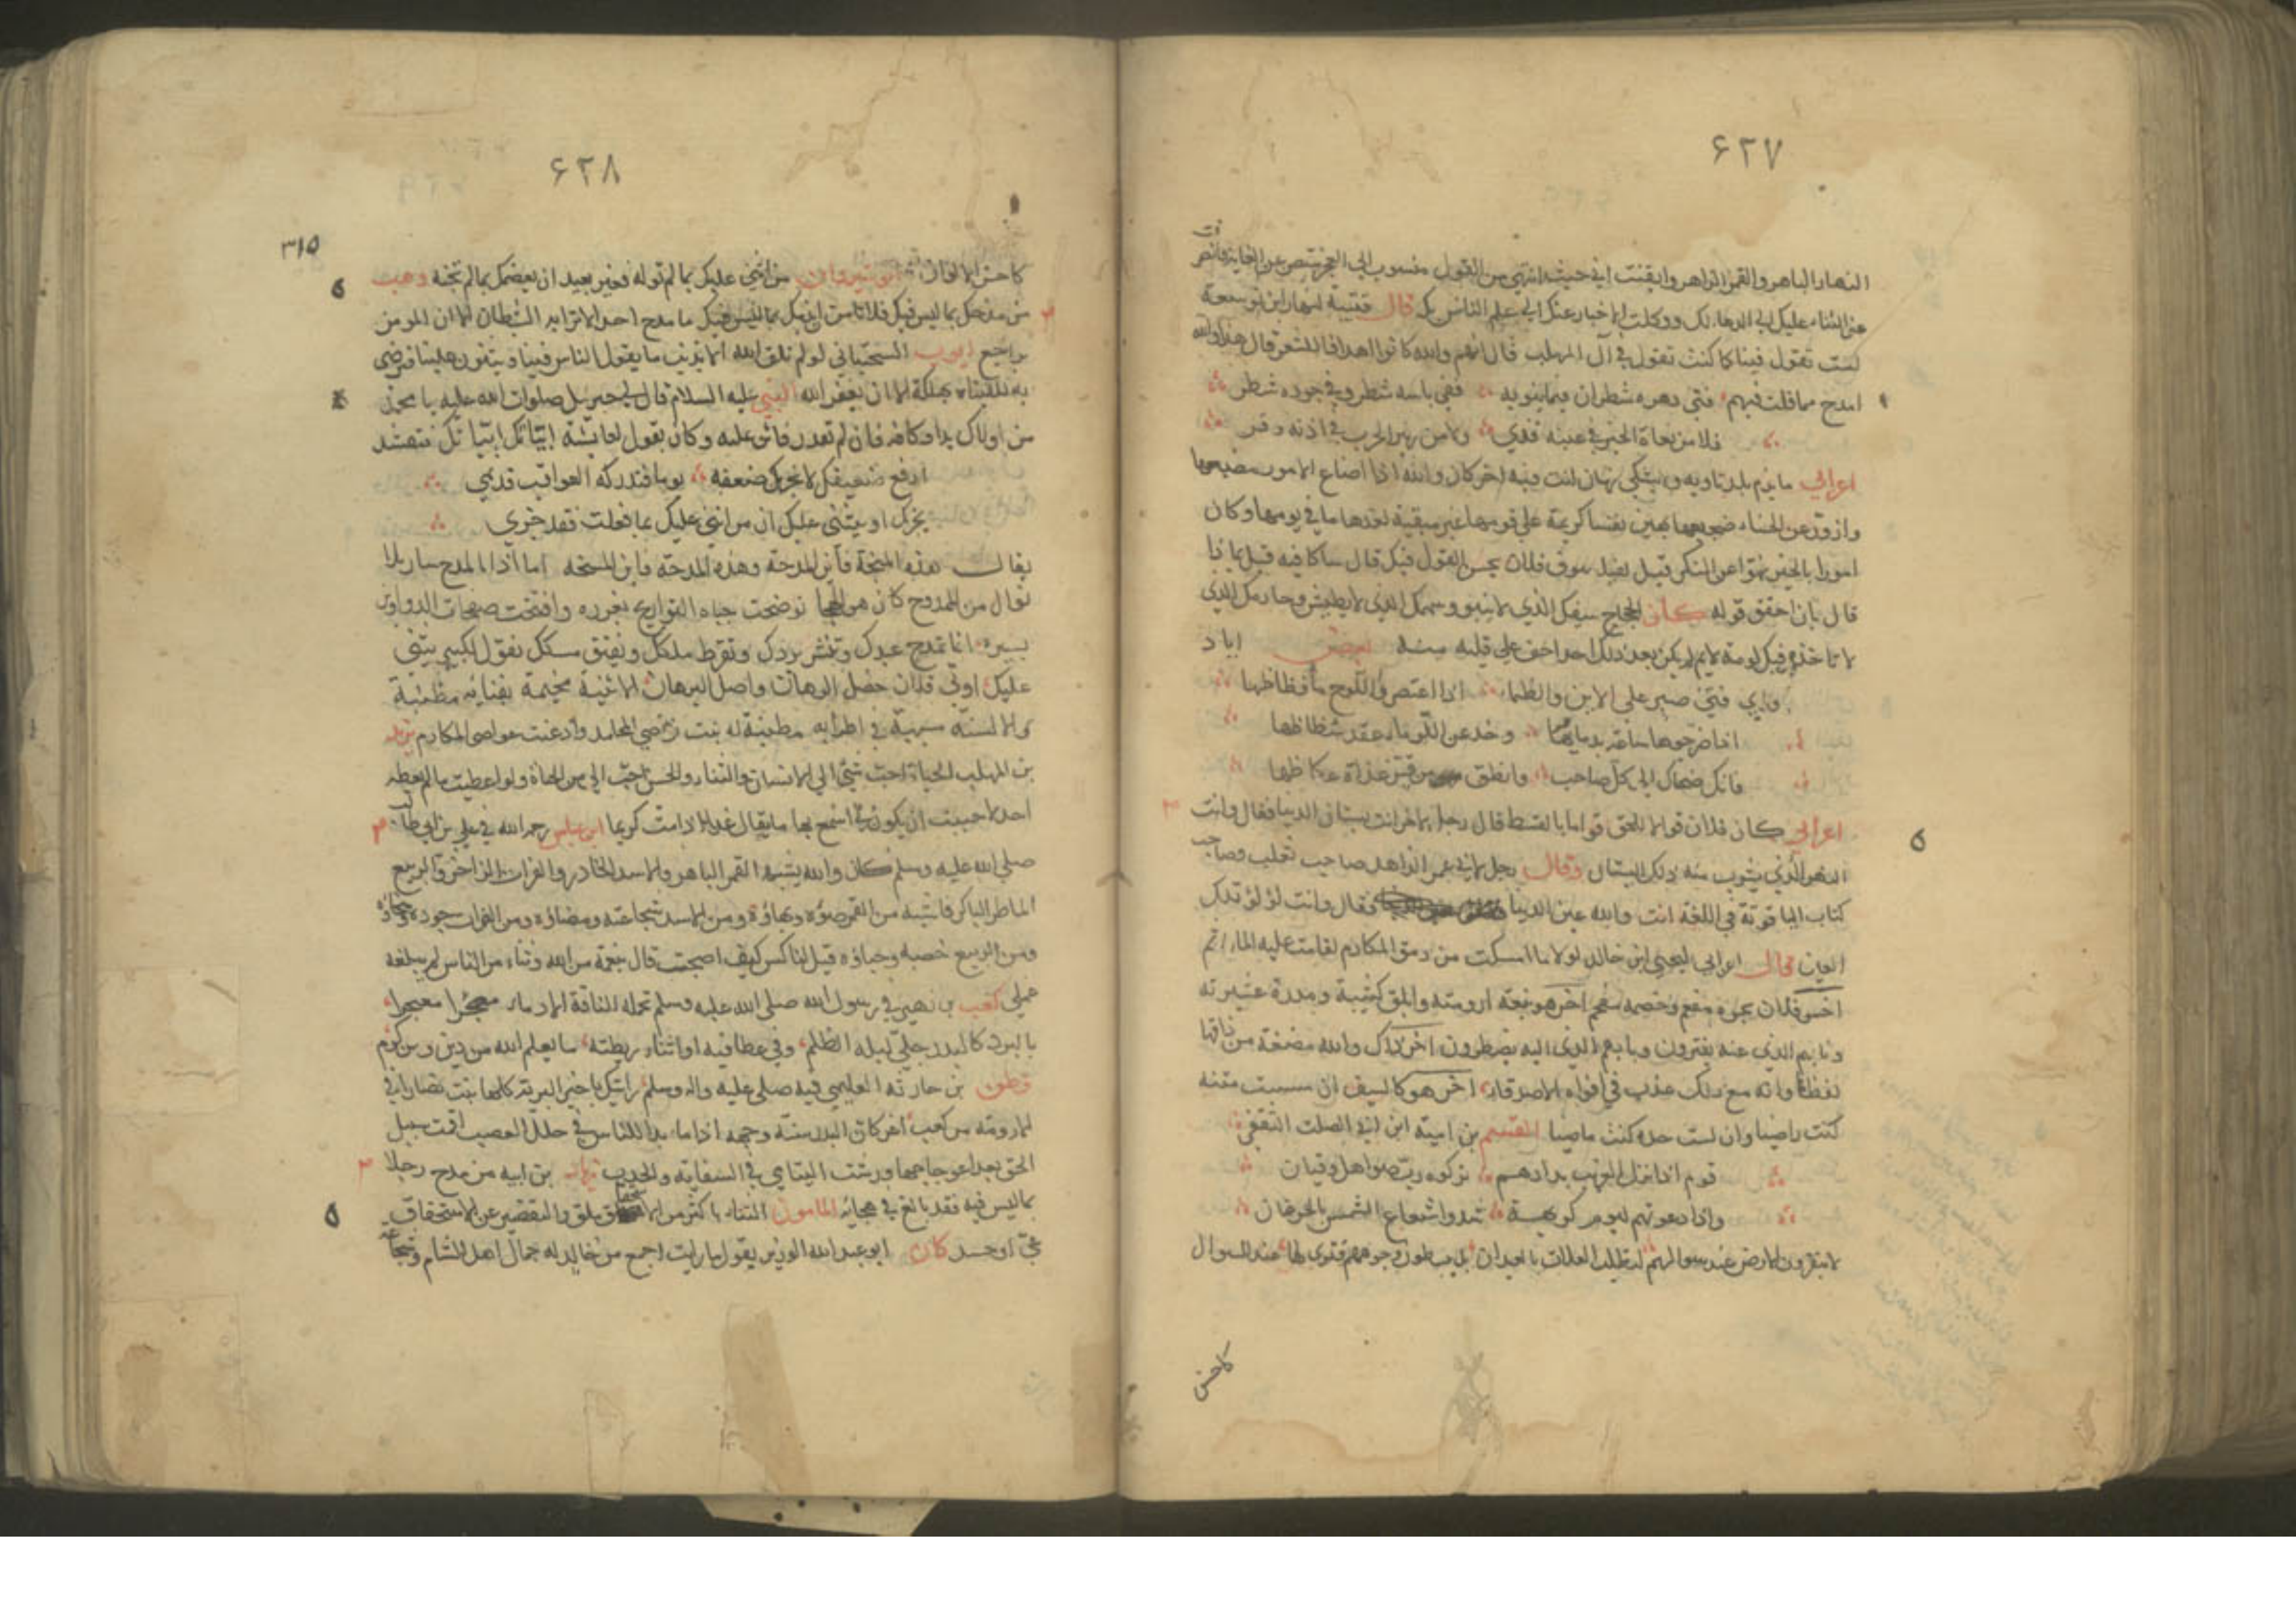 ۶۲۷
النهار الباهر والقمر الزاهر وايقنت اني حيث انتهى من القول منسوب الى العجز مقصر عن الغاية فانصرفت
عن الثناء عليك الى الدعاء لك ووكلت الاخبار عنك الى علم الناس بك قال قتيبة لنهار ابن توسعة
لست تقول فينا كما كنت تقول في آل المهلب قال انهم والله كانوا اهدافا للشعر قال هذا والله
امدح مما قلت فيهم فتى دهره شطران فيما ينوبه ففي باسه شطر وفي جوده شطر
فلا من بغاة الخير في عينه قذى ولا من زئير الحرب في اذنه وقر
اعرابي
وازور عن الحسناء ضجيعها يهين نفسا كريمة على قومها غير مبقية لغد ما في يومها وكان
امورا بالخير نهوا عن المنكر قيل
قال بان احقق قوله كان الحجاج سيفك الذي لا ينبو وسهمك الذي لا يطيش وخادمك الذي
لا تاخذه فيك لومة لايم لم يكن بعد ذلك احد اخف على قلبه منه لبعض اياد
واي فتى صبر على الاين والظماء اذا اعتصروا للوح ماء فظاظها
اذا ضرجوها ساعة بدمائها وحل عن الكوماء عقد شظاظها
فانك ضحاك الى كل صاحب وانطق من قس غداة عكاظها
اعرابي كان فلان قوالا للحق قواما بالقسط قال رجل لاخر انت بستان الدنيا فقال وانت
النهر الذي يشرب منه ذلك البستان وقال رجل لابي عمر الزاهد صاحب ثعلب وصاحب
كتاب الياقوتة في اللغة انت والله عين الدنيا فقال وانت لؤلؤ تلك
العين قال اعرابي ليحيى ابن خالد لولا ما امسكت من رمق المكارم لقامت عليه الماتم
اخر فلان بجوده مفعم وخصمه مفحم اخر هو نبعة ارومته وابلق كتيبة ومدرة عشيرته
ونابهم الذي عنه يفترون وبابهم الذي اليه يضطرون اخر لذاك والله مضغة من ذاقها
لفظها وانه مع ذلك عذب في افواه الاصدقاء اخر هو كالسيف ان مسست متنه
كنت راضيا وان لست حده كنت ماضيا القسيم بن امية ابن ابي الصلت الثقفي
قوم اذا نزل الغريب بدارهم تركوه رب صواهل وقيان
واذا دعوتهم ليوم كريهة سدوا شعاع الشمس بالخرصان
لا ينقرون الارض عند سوالهم لتطلب العلات بالعيدان بل يبسطون وجوههم فترى لها عند السوال
كاحسن
۶۲۸
۳۱۵
كاحسن الالوان انوشيروان من اثنى عليك بما لم توله فغير بعيد ان يغضمك بما لم تجنه وهب
من مدحك بما ليس فيك فلا تامن ان يذمك بما ليس فيك ما مدح احد الا تراءى له الشيطان الا ان المومن
يراجع ايوب السختياني لو لم نلق الله الا بذنب ما يقول الناس فينا ويثنون علينا فنرضى
به للقيناه بهلكة الا ان يغفر الله النبي عليه السلام قال لي جبرئيل صلوات الله عليه يا محمد
من اولاك يدا وكافه فان لم تقدر فاثن عليه وكان يقول لعايشة ابياتك ابياتك فتنشد
ارفع ضعيفك لا يحر بك ضعفه يوما فتدركه العواقب قد نمى
يجزيك او يثني عليك ان من اثنى عليك بما فعلت فقد جزى
يقال هذه المنحة فاين المدحة وهذه المدحة فاين المنحة اما اذا المدح سار بلا
نوال من الممدوح كان هو الهجا توضحت جباه التواريخ بغرره وافتتحت صفحات الدواوين
بسيره انما تمدح عبدك وتنشر بردك وتقرط ملكك وتفتق مسكك تقول الكبير يثني
عليك اوتي فلان خصل الرهان واصل البرهان الاثنية مخيمة بفنائه مطنبة
والالسنة مسهبة في اطرائه مطنبة له بنت نواصي المحامد واذعنت عواصي المكارم يزيد
بن المهلب الحياة احب شيء الى الانسان والثناء والحسن احب الي من الحياة ولو اعطيت ما لم يعطه
احد لاحببت ان يكون لي اذن اسمع بها ما يقال غدا اذا مت كريما ابن عباس رحمه الله في علي بن ابي طالب
صلى الله عليه وسلم كان والله يشبه القمر الباهر والاسد الخادر والفرات الزاخر والربيع
الماطر الباكر فاشبه من القمر ضوءه وبهاؤه ومن الاسد شجاعته ومضاؤه ومن الفرات جوده وسخاؤه
ومن الربيع خصبه وحياؤه قيل لناكس كيف اصبحت قال بنعمة من الله وثناء من الناس لم يبلغه
عملي كعب بن زهير في رسول الله صلى الله عليه وسلم تحمله الناقة الادماء معتجرا
بالبرد كالبدر جلى ليلة الظلم وفي عطافيه او اثناء ريطته ما يعلم الله من دين ومن كرم
قطن بن حارثه العليمي فيه صلى عليه واله وسلم رايتك يا خير البرية كلها نبت نضارا في
الارومة من كعب اغر كان البدر سنة وجهه اذا ما بدا للناس في حلل العصب اقمت سبيل
الحق بعد اعوجاجها ورشت اليتامى في السقاية والجدب زياد بن ابيه من مدح رجلا
بما ليس فيه فقد بالغ في هجائه المامون الثناء باكثر من الاستحقاق ملق والتقصير عن الاستحقاق
عي او حسد كان ابو عبد الله الوزير يقول ما رايت اجمع من خالد له جمال اهل الشام وشجاعة